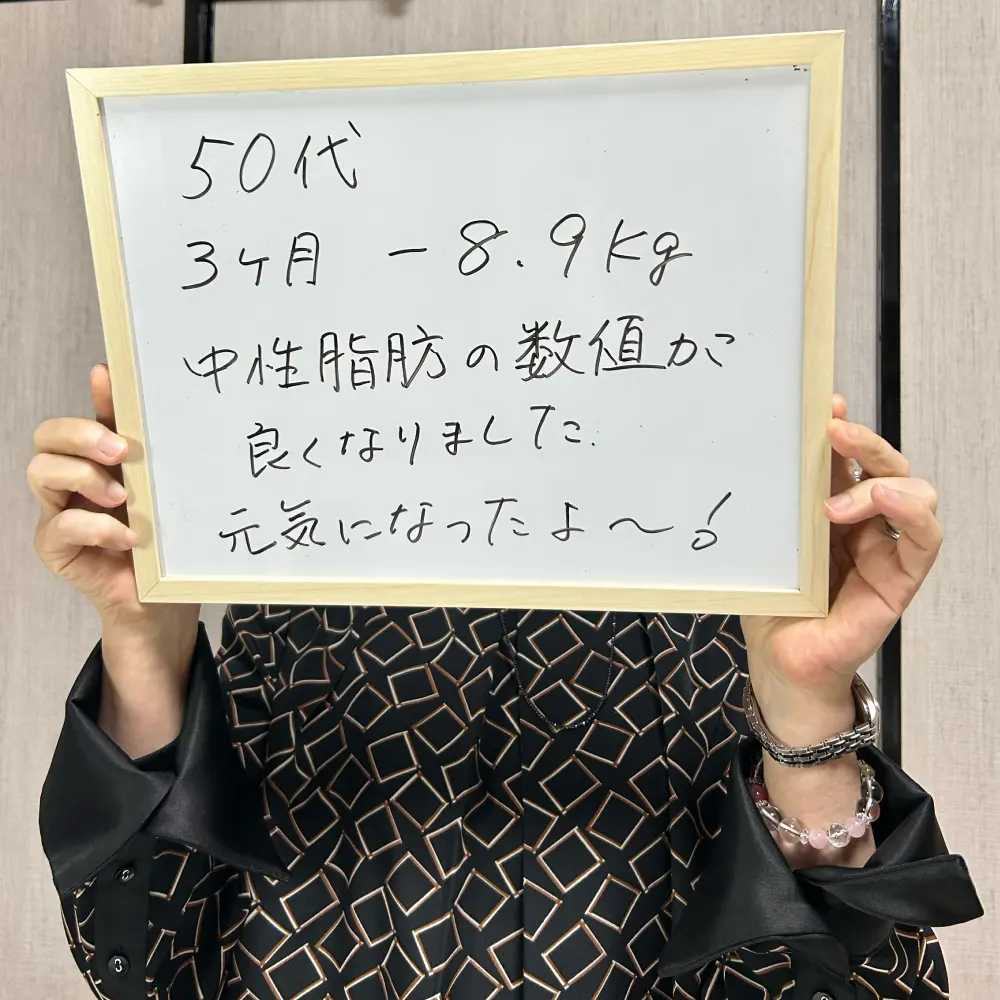 50代
3ヶ月 -8.9kg
中性脂肪の数値が
良くなりました.
元気になったよ〜!